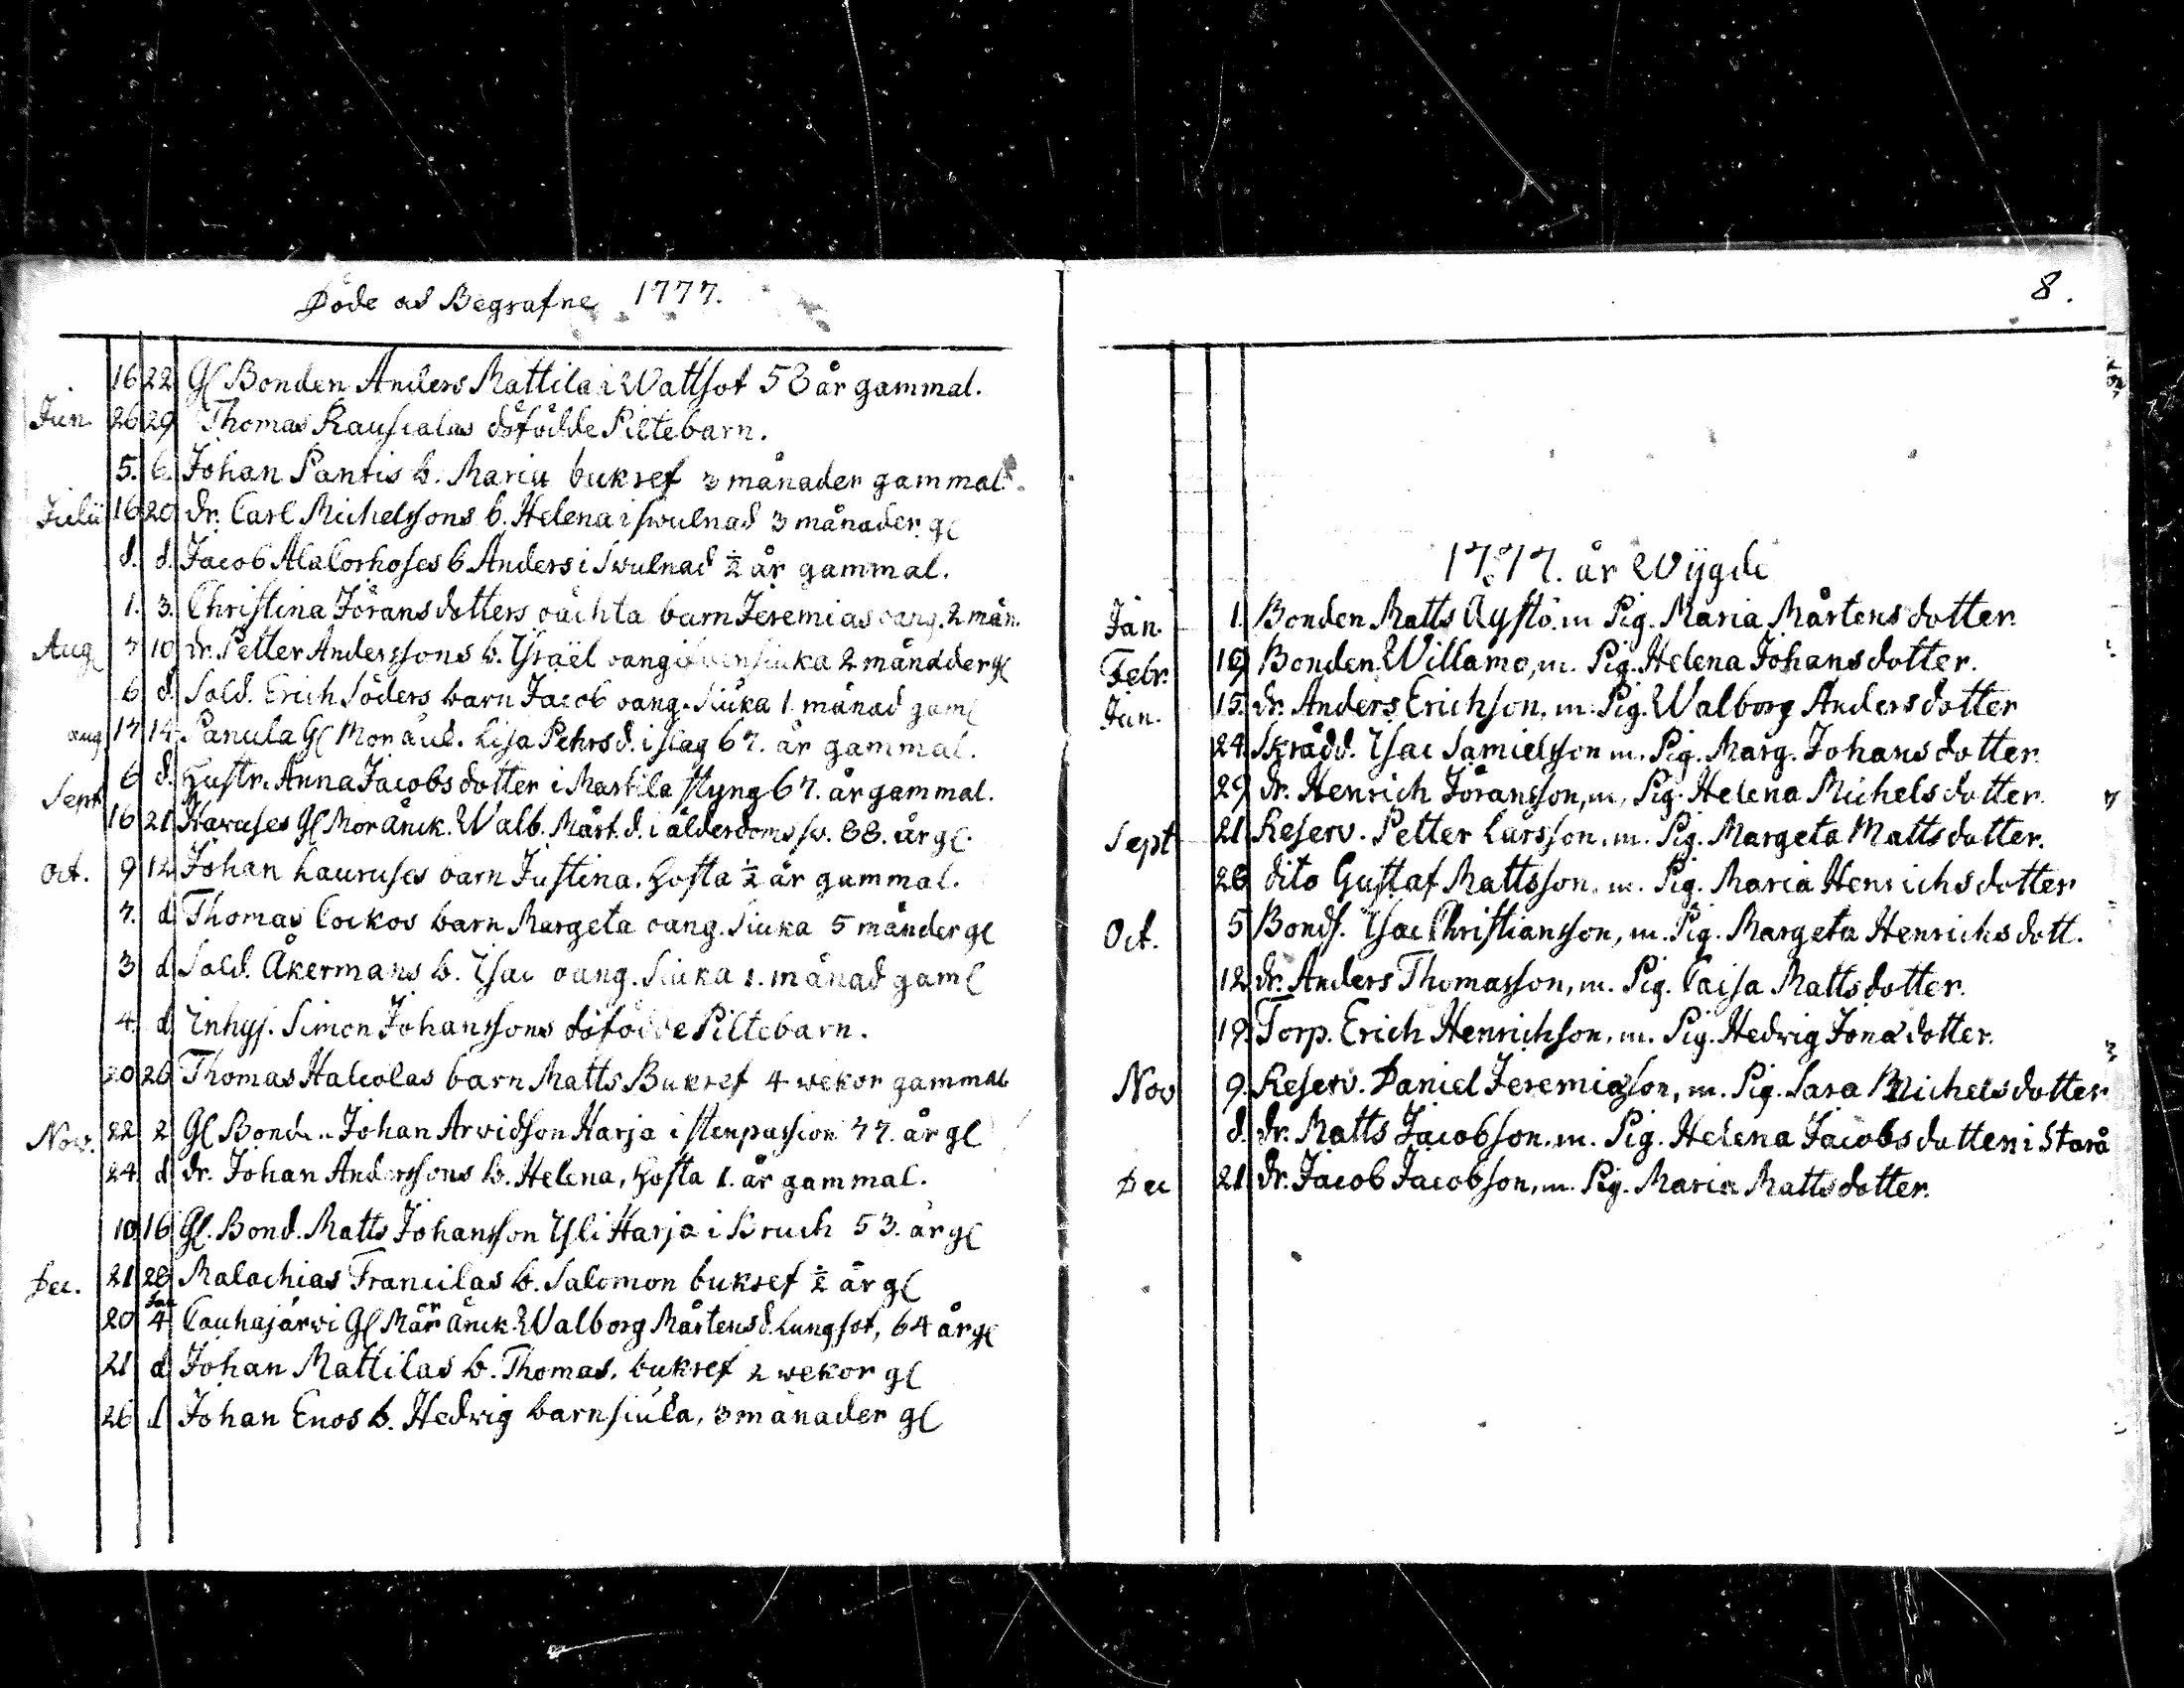 Döde od Begrafne 1777.
16 22 Gl Bonden Anders Mattila i Wattsot 53 år gammal.
Jun. 26 29 Thomas Rauscalas döfödde Piltebarn.
5. 6. Johan Pantis b. Maria bukref 3 månader gammal.
Julii 16 20 dr. Carl Michelssons b. Helena i swulnad 3 månader. gl
d. d. Jacob Alalorhoses b Anders i Swulnad ½ år gammal.
1. 3. Christina Jöransdotters oächta barn Jeremias oang. 2 mån.
Aug 7 10 dr. Petter Anderssons b. Israël oangifwen siuka 2 månader gl
6 d. Sold. Erich Söders barn Jacob oang. Siuka 1 månad gaml
aug 17 17. Panula Gl Mor änk. Lisa Pehrsd. i slag 67. år gammal.
6 d. Hustr. Anna Jacobsdotter i Marttila styng 67. år gammal.
Sept 16 21 Hawuses Gl Mor änck. Walb. Mårt.d. i ålderdoms sv. 88. år gl.
Oct. 9 12 Johan Lauruses barn Justina. Hosta ½ år gammal.
7. d Thomas Cockos barn Margeta oang. Siuka 5 månder gl
3 d Sold. Åkermans b. Isac oang. Siuka 1. månad gaml
4. d Inhys. Simon Johanssons döfödde Piltebarn.
20 26 Thomas Halcolas barn Matts Bukref 4 wekor gammal
Nov. 22 2 Gl Bonden Johan Arvidson Harja i stenpassion 77. år gl
24 d dr. Johan Anderssons b. Helena, Hosta 1. år gammal.
10 16 Gl. Bond. Matts Johansson Yli Harja i Bruch 53. år gl
Dec. 21 28 Malachias Francilas b. Salomon bukref ½ år gl
20 Jan 4 Cauhajärwi Gl Mor änck. Walborg Mårtensd. Lungsot, 64 år gl
21 d Johan Mattilas b. Thomas. bukref 2 wekor gl
26 d Johan Enos b. Hedwig barnsiuka, 3 månader gl
8.
1777. år Wijgde
Jan. 1. Bonden Matts Aystö. m Pig. Maria Mårtensdotter.
Febr. 19 Bonden Willamo, m. Pig. Helena Johansdotter.
Jun. 15. dr. Anders Erichson, m. Pig. Walborg Andersdotter
24. Skrädd. Isac Samielsson m. Pig. Marg. Johansdotter.
29 dr. Henrich Jöransson, m, Pig. Helena Michelsdotter.
Sept 21 Reserv. Petter Larsson, m. Pig. Margeta Mattsdotter.
28 dito Gustaf Mattsson. m. Pig. Maria Henrichsdotter
Oct. 5 Bonds. Isac Christiansson, m. Pig. Margeta Henrichsdott.
12 dr. Anders Thomasson, m. Pig. Caisa Mattsdotter.
19. Torp. Erich Henrichson, m. Pig. Hedwig Jonadotter.
Nov 9. Reserv. Daniel Jeremiason, m. Pig. Sara Michelsdotter
d. dr. Matts Jacobson. m. Pig. Helena Jacobsdotter i Starå
Dec 21. dr. Jacob Jacobson, m. Pig. Maria Mattsdotter.